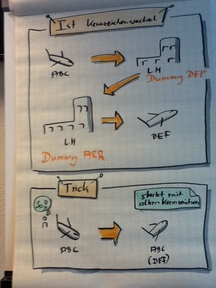 Ist Kennzeichenwechsel?
ABC
LH
Dummy DEP
LH
DEF
Dummy ARR
Trick
So?
startet mit
altem Kennzeichen
ABC
ABC
(DEF)